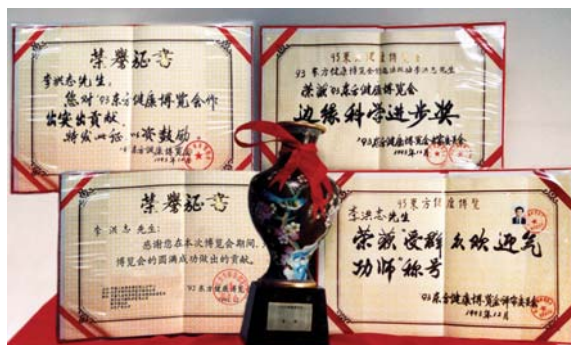 荣誉证书
李洪志先生:
您对'93东方健康博览会作
出突出贡献.
特发此证 以资鼓励.
'93东方健康博览会
1993年12月
93东方健康博览会
李洪志先生
荣获'93东方健康博览会
边缘科学进步奖
'93东方健康博览会
1993年12月
荣誉证书
李洪志 先生:
感谢您在本次博览会期间,
博览会的圆满成功做出的贡献.
'93东方健康博览会
93东方健康博览
李洪志先生
荣获"受群众欢迎气
功师"称号
'93东方健康博览会评审委员会
1993年12月